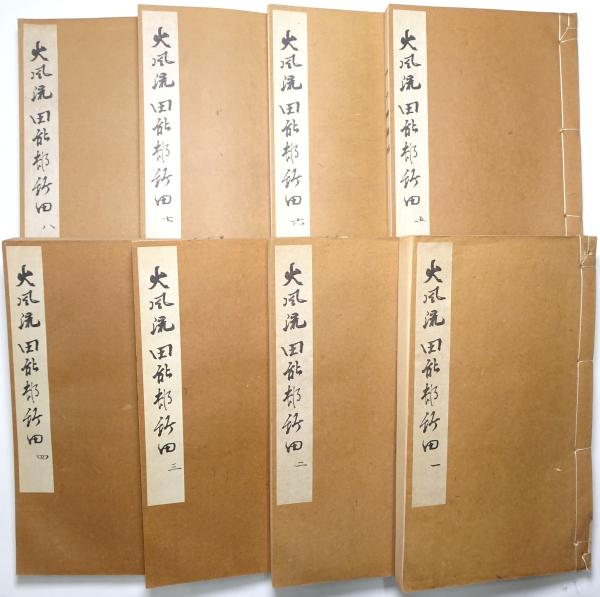 大風流田能邨竹田 五
大風流田能邨竹田 六
大風流田能邨竹田 七
大風流田能邨竹田 八
大風流田能邨竹田 一
大風流田能邨竹田 二
大風流田能邨竹田 三
大風流田能邨竹田 四